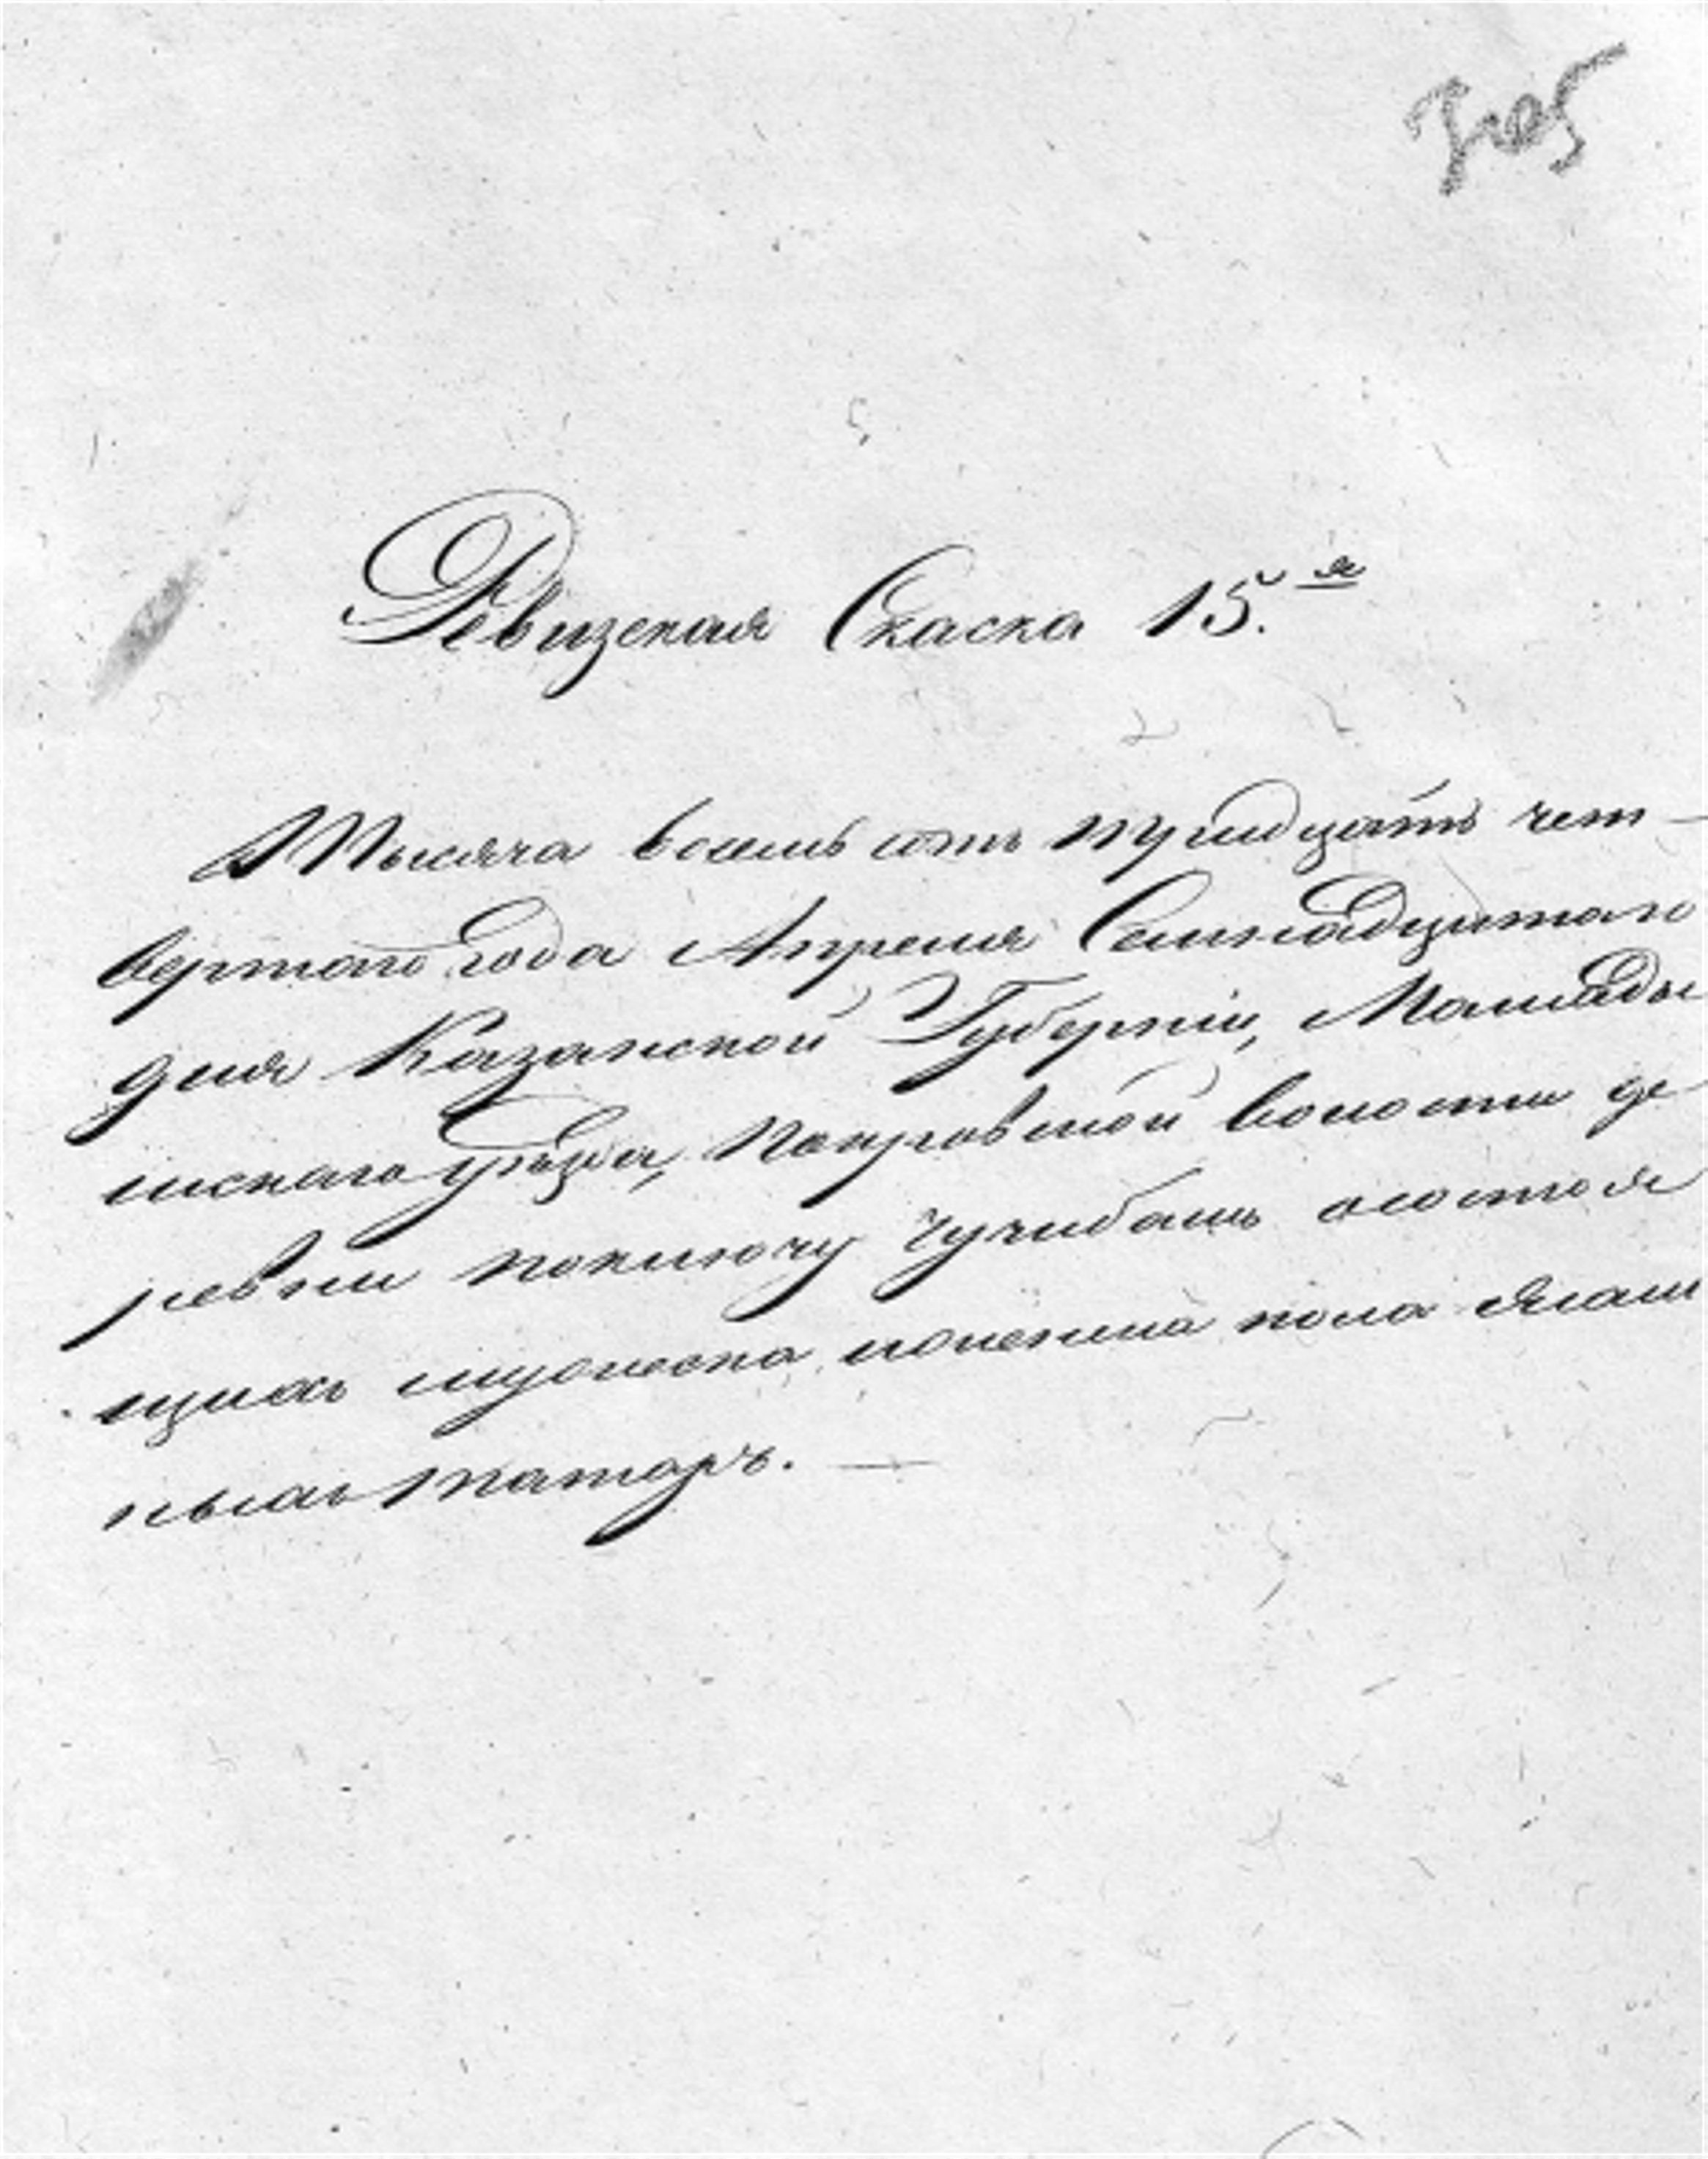 Ревизская Скаска 15.я
Тысяча восемь сотъ тридцать чет-
вертаго года Апреля Семнадцатаго
дня Казанской Губернiи, Мамады
шскаго уѣзда, Покровской волости де
ревни поключу Чучибашъ осостоя
щихъ мужеска иженска пола Ясаш
ныхъ татаръ. —